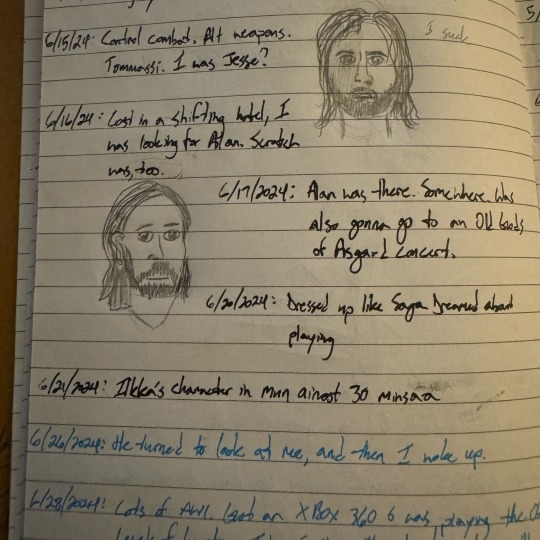 6/15/24: Control combat. Alt weapons.
Tommassi. I was Jesse?
I suck
6/16/24: Lost in a shifting hotel, I
was looking for Alan. Scratch
was, too.
6/17/2024: Alan was there. Somewhere. Was
also gonna go to an Old Gods
of Asgard concert.
6/20/2024: Dressed up like Saga. Dreamed about
playing
6/21/2024: Ilkka's character in Mun ainoat 30 minsaa
6/26/2024: He turned to look at me, and then I woke up.
6/28/2024: Lots of AWI. Got an XBOX 360 & was playing the
5/
6